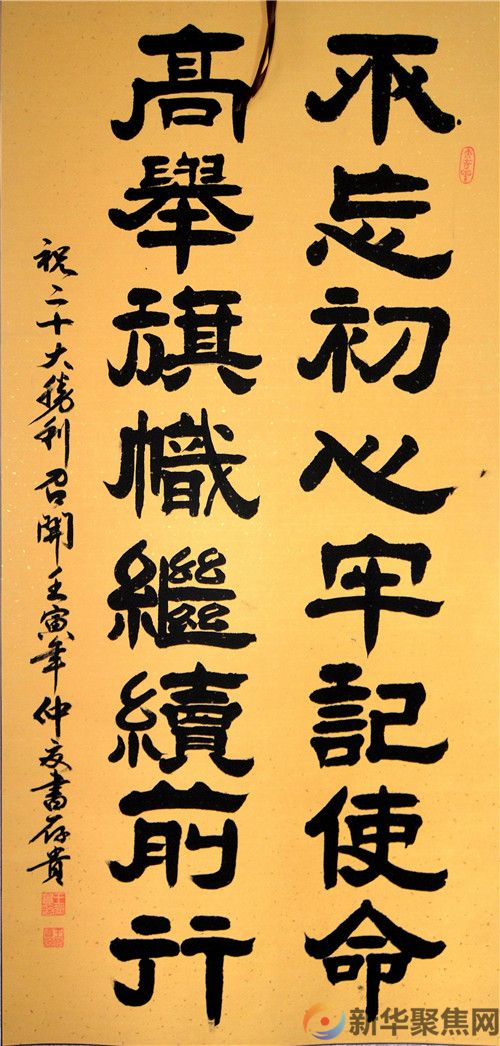 不忘初心牢記使命
高舉旗幟繼續前行
祝二十大勝利召開壬寅年仲夏書存貴
新华聚焦网